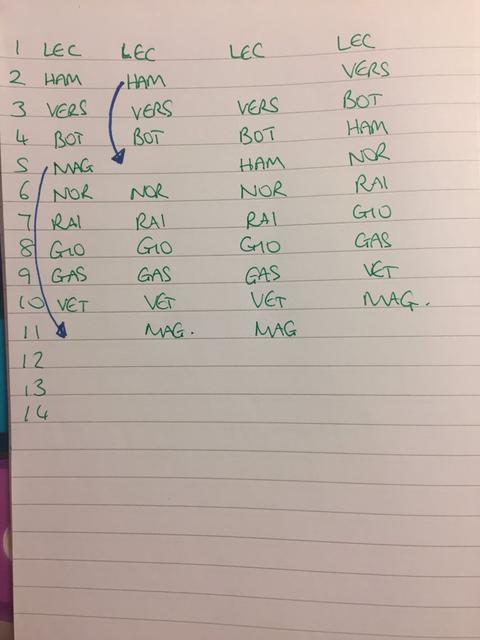 1 LEC LEC LEC LEC
2 HAM HAM VERS
3 VERS VERS VERS BOT
4 BOT BOT BOT HAM
5 MAG HAM NOR
6 NOR NOR NOR RAI
7 RAI RAI RAI GIO
8 GIO GIO GIO GAS
9 GAS GAS GAS VET
10 VET VET VET MAG.
11 MAG. MAG
12
13
14